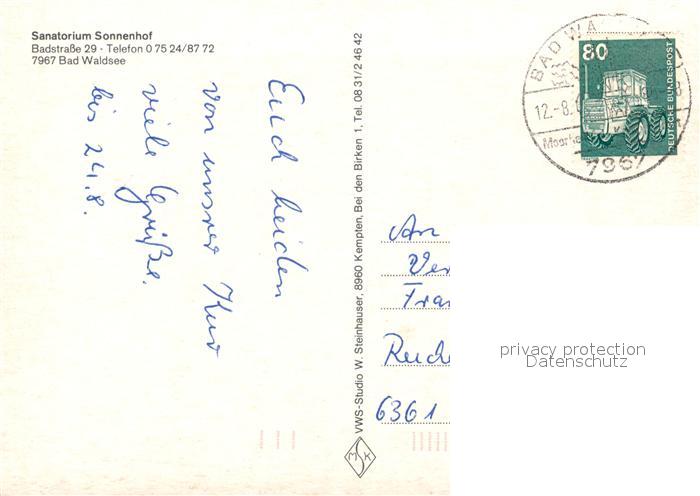 Sanatorium Sonnenhof
Badstraße 29 · Telefon 0 75 24/87 72
7967 Bad Waldsee
Euch beiden
von unsrer Kur
viele Grüße.
bis 24.8.
VWS-Studio W. Steinhauser, 8960 Kempten, Bei den Birken 1, Tel. 08 31/2 46 42
MSK
BAD WA
12.-8.
Moorhe
7967
80
DEUTSCHE BUNDESPOST
An
Ver
Fra
Reiche
6361
privacy protection
Datenschutz